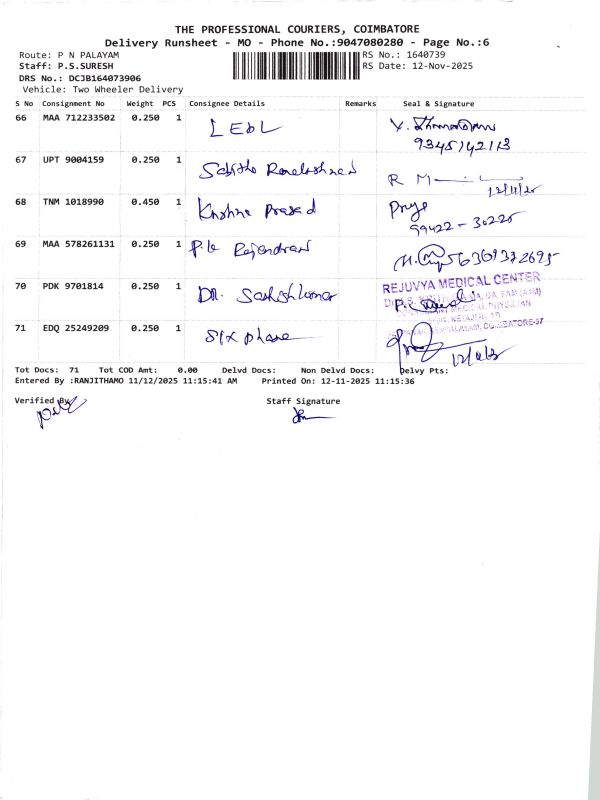 THE PROFESSIONAL COURIERS, COIMBATORE
Delivery Runsheet - MO - Phone No.:9047080280 - Page No.:6
Route: P N PALAYAM RS No.: 1640739
Staff: P.S.SURESH RS Date: 12-Nov-2025
DRS No.: DCJB164073906
Vehicle: Two Wheeler Delivery
S No Consignment No Weight PCS Consignee Details Remarks Seal & Signature
66 MAA 712233502 0.250 1 LEDL
9345142113
67 UPT 9004159 0.250 1 R M
12/11/25
68 TNM 1018990 0.450 1 Krishna Prasad Priya
99422-30225
69 MAA 578261131 0.250 1 P.K Rajendran
70 PDK 9701814 0.250 1 DR. Sathishkumar REJUVYA MEDICAL CENTER
COIMBATORE-37
71 EDQ 25249209 0.250 1 Six phase
Tot Docs: 71 Tot COD Amt: 0.00 Delvd Docs: Non Delvd Docs: Delvy Pts:
Entered By :RANJITHAMO 11/12/2025 11:15:41 AM Printed On: 12-11-2025 11:15:36
Verified By Staff Signature